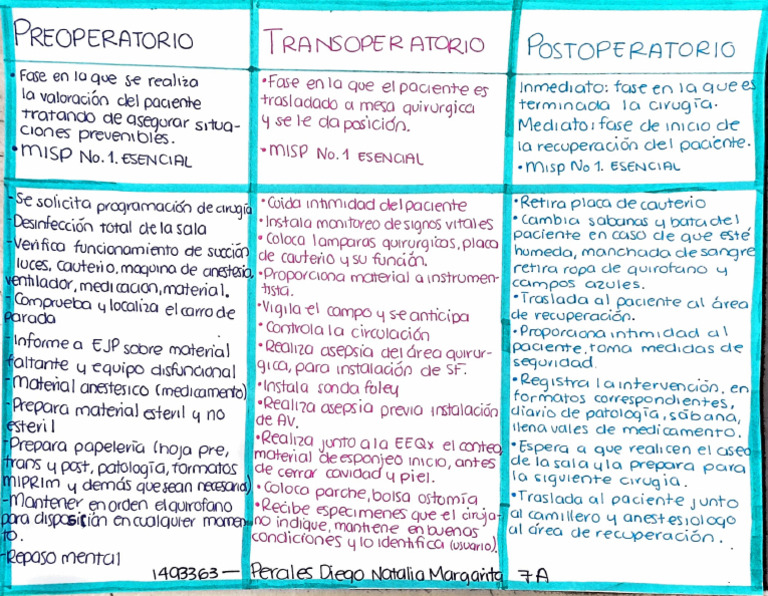 PREOPERATORIO
• Fase en la que se realiza
la valoración del paciente
tratando de asegurar situa-
ciones prevenibles.
• MISP No. 1. ESENCIAL
- Se solicita programación de cirugía
- Desinfección total de la sala
- Verifica funcionamiento de succión
luces, cauterio, maquina de anestesia,
ventilador, medicacion, material.
- Comprueba y localiza el carro de
parada
- Informe a EJP sobre material
faltante y equipo disfuncional
- Material anestesico (medicamento)
- Prepara material esteril y no
esteril
- Prepara papelería (hoja pre,
trans y post, patología, formatos
MIPRIM y demás que sean necesaria)
- Mantener en orden el quirofano
para disposición en cualquier momen-
to.
- Repaso mental
TRANSOPERATORIO
• Fase en la que el paciente es
trasladado a mesa quirurgica
y se le da posición.
• MISP No. 1 ESENCIAL
• Cuida intimidad del paciente
• Instala monitoreo de signos vitales
• Coloca lamparas quirurgicas, placa
de cauterio y su función.
• Proporciona material a instrumen-
tista.
• Vigila el campo y se anticipa
• Controla la circulación
• Realiza asepsia del área quirur-
gica, para instalación de SF.
• Instala sonda foley
• Realiza asepsia previa instalación
de AV.
• Realiza junto a la EEQx el conteo
material de esponjeo inicio, antes
de cerrar cavidad y piel.
• Coloca parche, bolsa ostomía
• Recibe especimenes que el ciruja-
no indique, mantiene en buenas
condiciones y lo identifica (usuario).
POSTOPERATORIO
Inmediato: fase en la que es
terminada la cirugía.
Mediato: fase de inicio de
la recuperación del paciente.
• MISP No 1. ESENCIAL
• Retira placa de cauterio
• Cambia sabanas y bata del
paciente en caso de que esté
humeda, manchada de sangre
retira ropa de quirofano y
campos azules.
• Traslada al paciente al área
de recuperación.
• Proporciona intimidad al
paciente, toma medidas de
seguridad.
• Registra la intervención, en
formatos correspondientes,
diario de patología, sábana,
llena vales de medicamento.
• Espera a que realicen el aseo
de la sala y la prepara para
la siguiente cirugia.
• Traslada al paciente junto
al camillero y anestesiologo
al área de recuperación.
1493363 — Perales Diego Natalia Margarita 7A